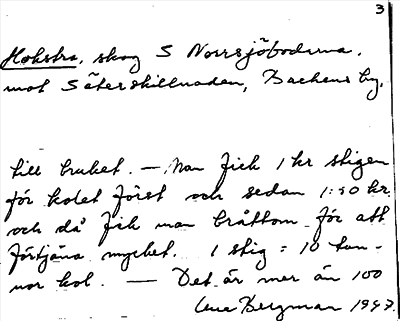 3
Hokstra, skog S Norrsjöbodarna.
mot Säterskillnaden, Backens by.
till bruket. — Man fick 1 kr stigen
för kolet först och sedan 1:50 kr
och då fick man bråttom för att
förtjäna mycket. 1 stig = 10 tun-
nor kol. — Det är mer än 100
Bergman 1997.